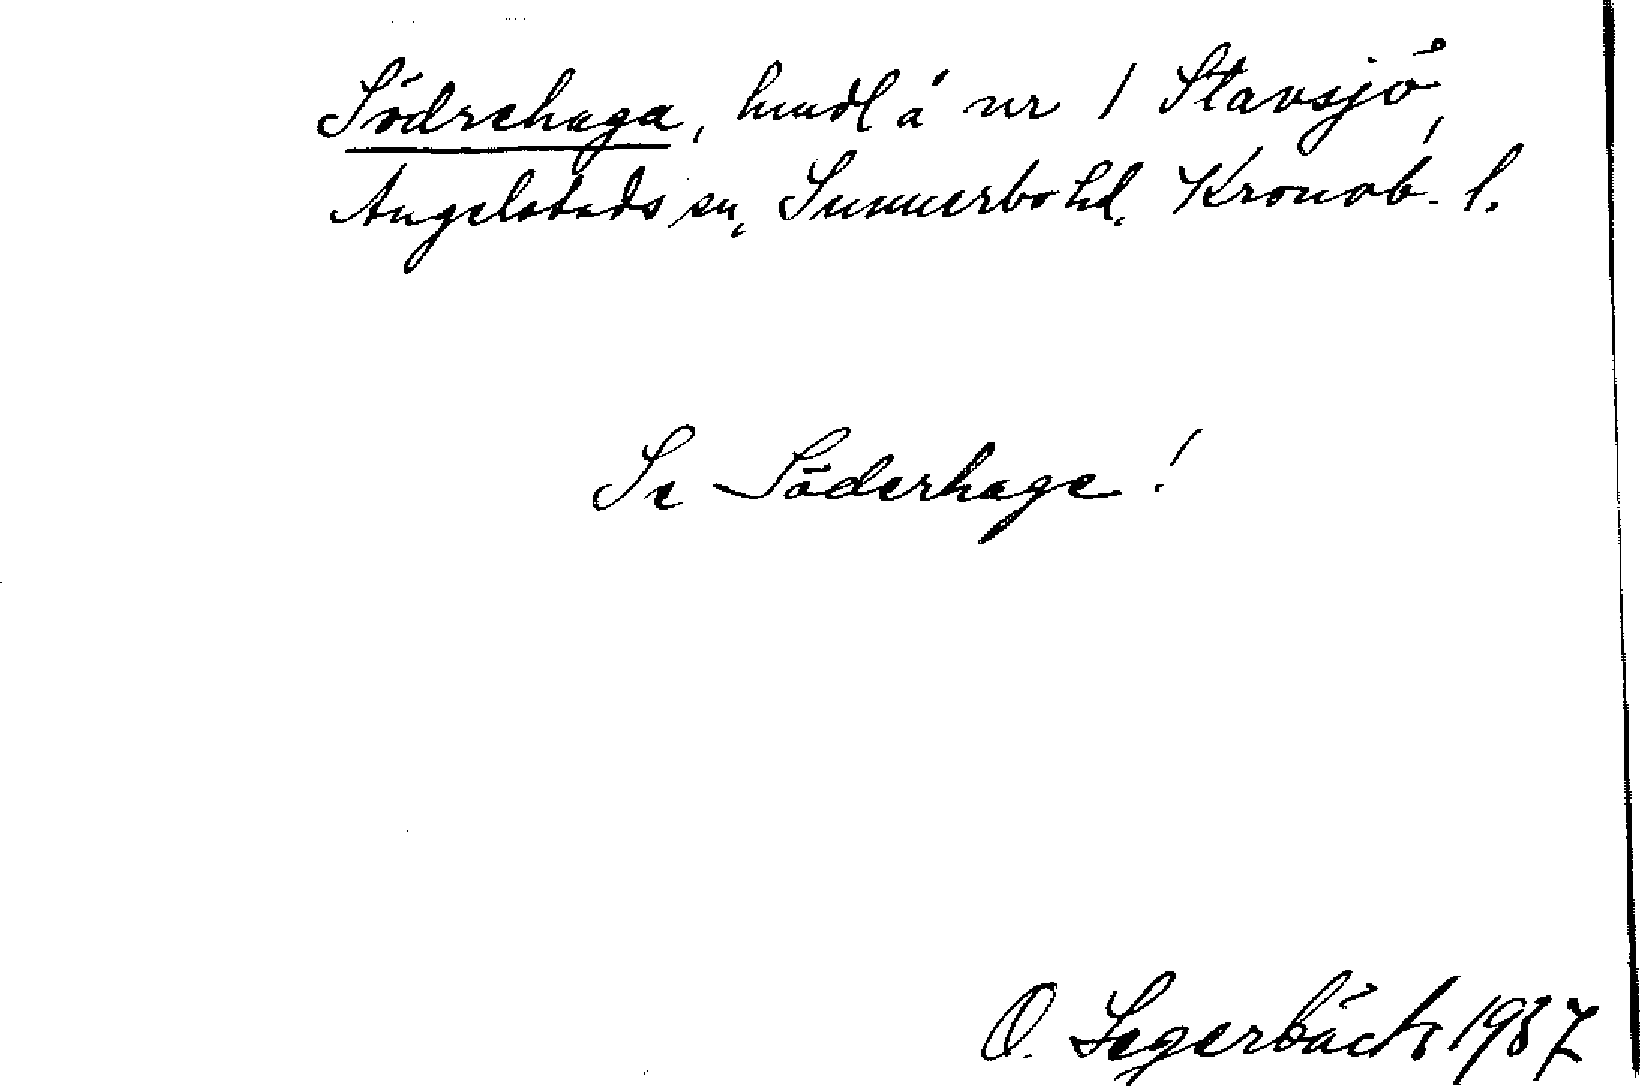 Södrehaga, hmdl å nr 1 Stavsjö,
Angelstads sn, Sunnerbo hd. Kronob. l.
Se Söderhage!
O. Segerbäck 1937